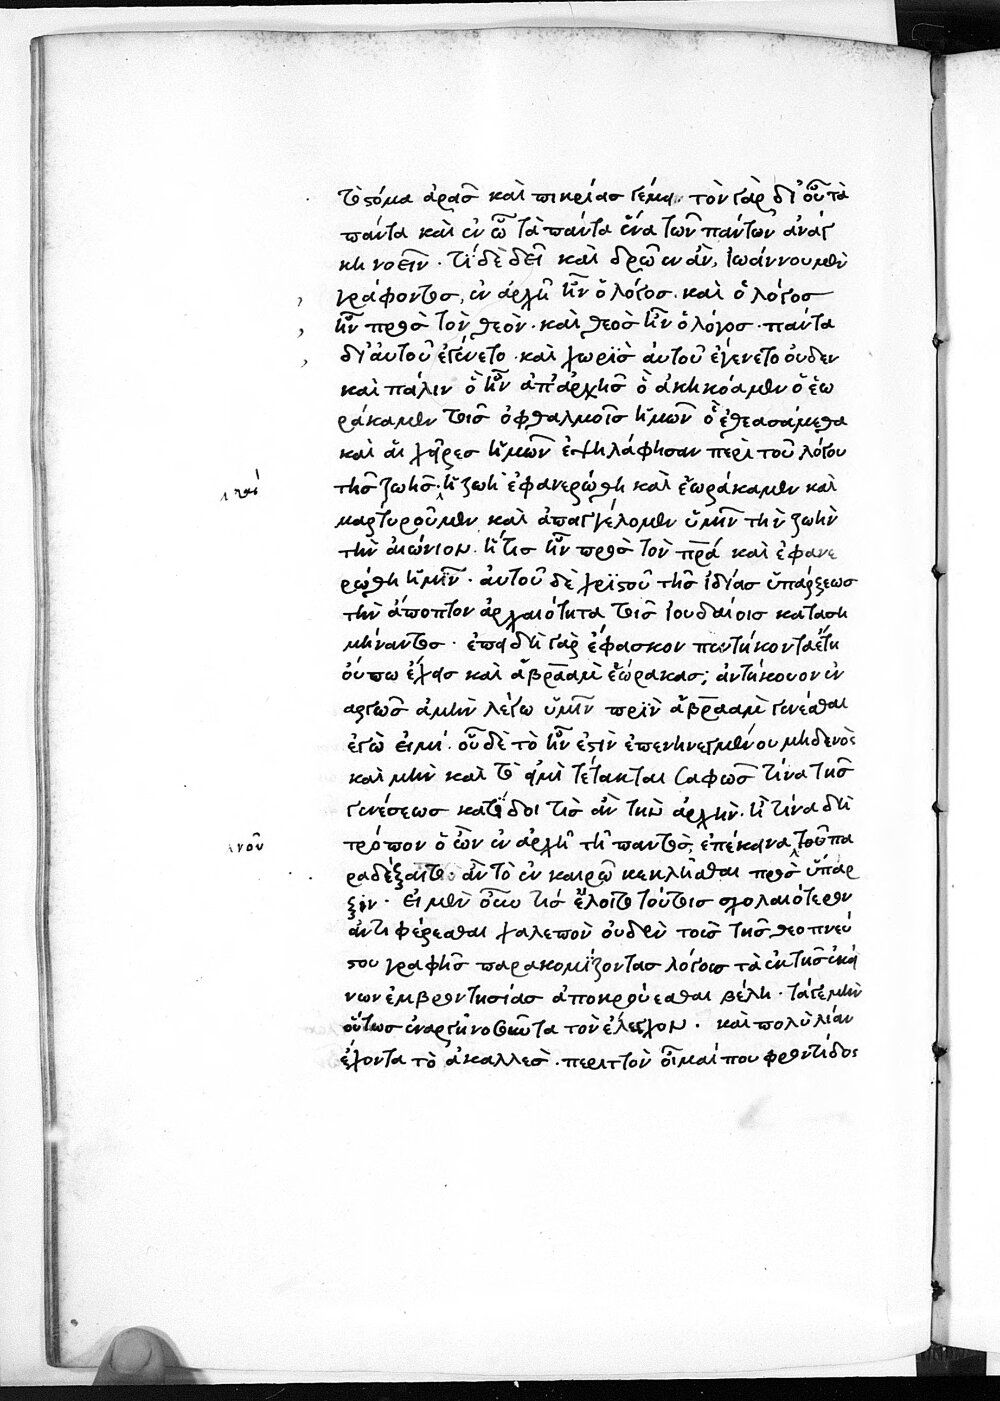 τὸ στόμα ἀρᾶς καὶ πικρίας γέμει· τὸν γὰρ δι' οὗ τὰ
πάντα καὶ ἐν ᾧ τὰ πάντα ἕνα τῶν πάντων ἀνάγ
κη νοεῖν · τί δὲ δεῖ καὶ δρῶεν ἂν, ἰωάννου μὲν
γράφοντος, ἐν ἀρχῇ ἦν ὁ λόγος · καὶ ὁ λόγος
ἦν πρὸς τὸν θεὸν · καὶ θεὸς ἦν ὁ λόγος · πάντα
δι' αυτοῦ ἐγένετο · καὶ χωρὶς ἀυτοῦ ἐγένετο ὀυδεν
καὶ πάλιν ὃ ἦν ἀπ' ἀρχῆς ὃ ἀκηκόαμεν ὃ ἑω
ράκαμεν τοις ὀφθαλμοῖς ἡμῶν ὃ ἐθεασάμεθα
καὶ ἁι χεῖρες ἡμῶν ἐψηλάφησαν περὶ τοῦ λόγου
καὶ
τῆς ζωῆς · ἡ ζωὴ ἐφανερώθη καὶ ἑωράκαμεν καὶ
μαρτυροῦμεν καὶ ἀπαγγέλομεν ὑμῖν τὴν ζωὴν
τὴν ἀιώνιον · ἥτις ἦν πρὸς τὸν πρα καὶ ἐφανε
ρώθη ἡμῖν · ἀυτοῦ δὲ χριστοῦ τῆς ἰδίας ὑπάρξεως
τὴν ἄποπτον ἀρχαιότητα τοις ἰουδαίοις κατασι
μήναντος · ἐπειδὴ γὰρ ἔφασκον πεντήκοντα ἔτη
ὄυπω ἔχεις καὶ ἀβραὰμ ἑώρακας; ἀντήκουον ἐν
αργῶς ἀμὴν λέγω ὑμῖν πρὶν ἀβραὰμ γενέσθαι
ἐγὼ ἐιμί · οὗ δὲ τὸ ἦν ἐστὶν ἐπενηνεγμένου μηδενὸς
καὶ μὴν καὶ τὸ ἐιμὶ τέτακται σαφῶς τίνα τῆς
γενέσεως κατίδοι τις ἂν τὴν ἀρχὴν · ἢ τίνα δὴ
τρόπον ὁ ὢν ἐν ἀρχῇ τῇ παντὸς ἐπέκεινα τοῦ πα
νοῦ
ραδέξαιτο · ἂν τὸ ἐν καιρῷ κεκλῆσθαι πρὸς ὕπαρ
ξιν · ἐι μὲν ὀῦν τις ἕλοιτο τόυτοις σχολαιότερον
ἀντιφέρεσθαι χαλεπὸν ὀυδὲν τοῖς τῆς θεοπνεύ
στου γραφῆς παρακομίζοντας λόγοις τὰ ἐκ τῆς ἐκεί
νων ἐμβροντησίας ἀποκρούεσθαι βέλη · τά γε μὴν
ὅυτως ἐναργῆ νοσοῦντα τὸν ἔλεγχον · καὶ πολὺ λίαν
ἔχοντα τὸ ἀκαλλὲς · περιττὸν ὀῖμαί που φροντίδος